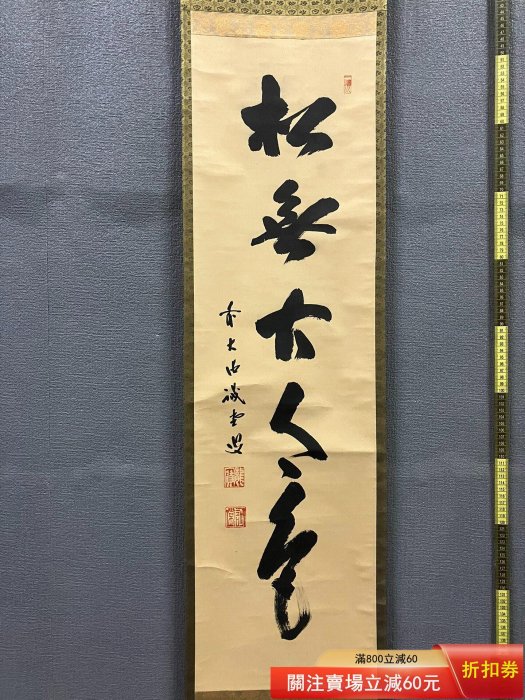 松無古今色
前大徳
滿800立減60
關注賣場立減60元
折扣券